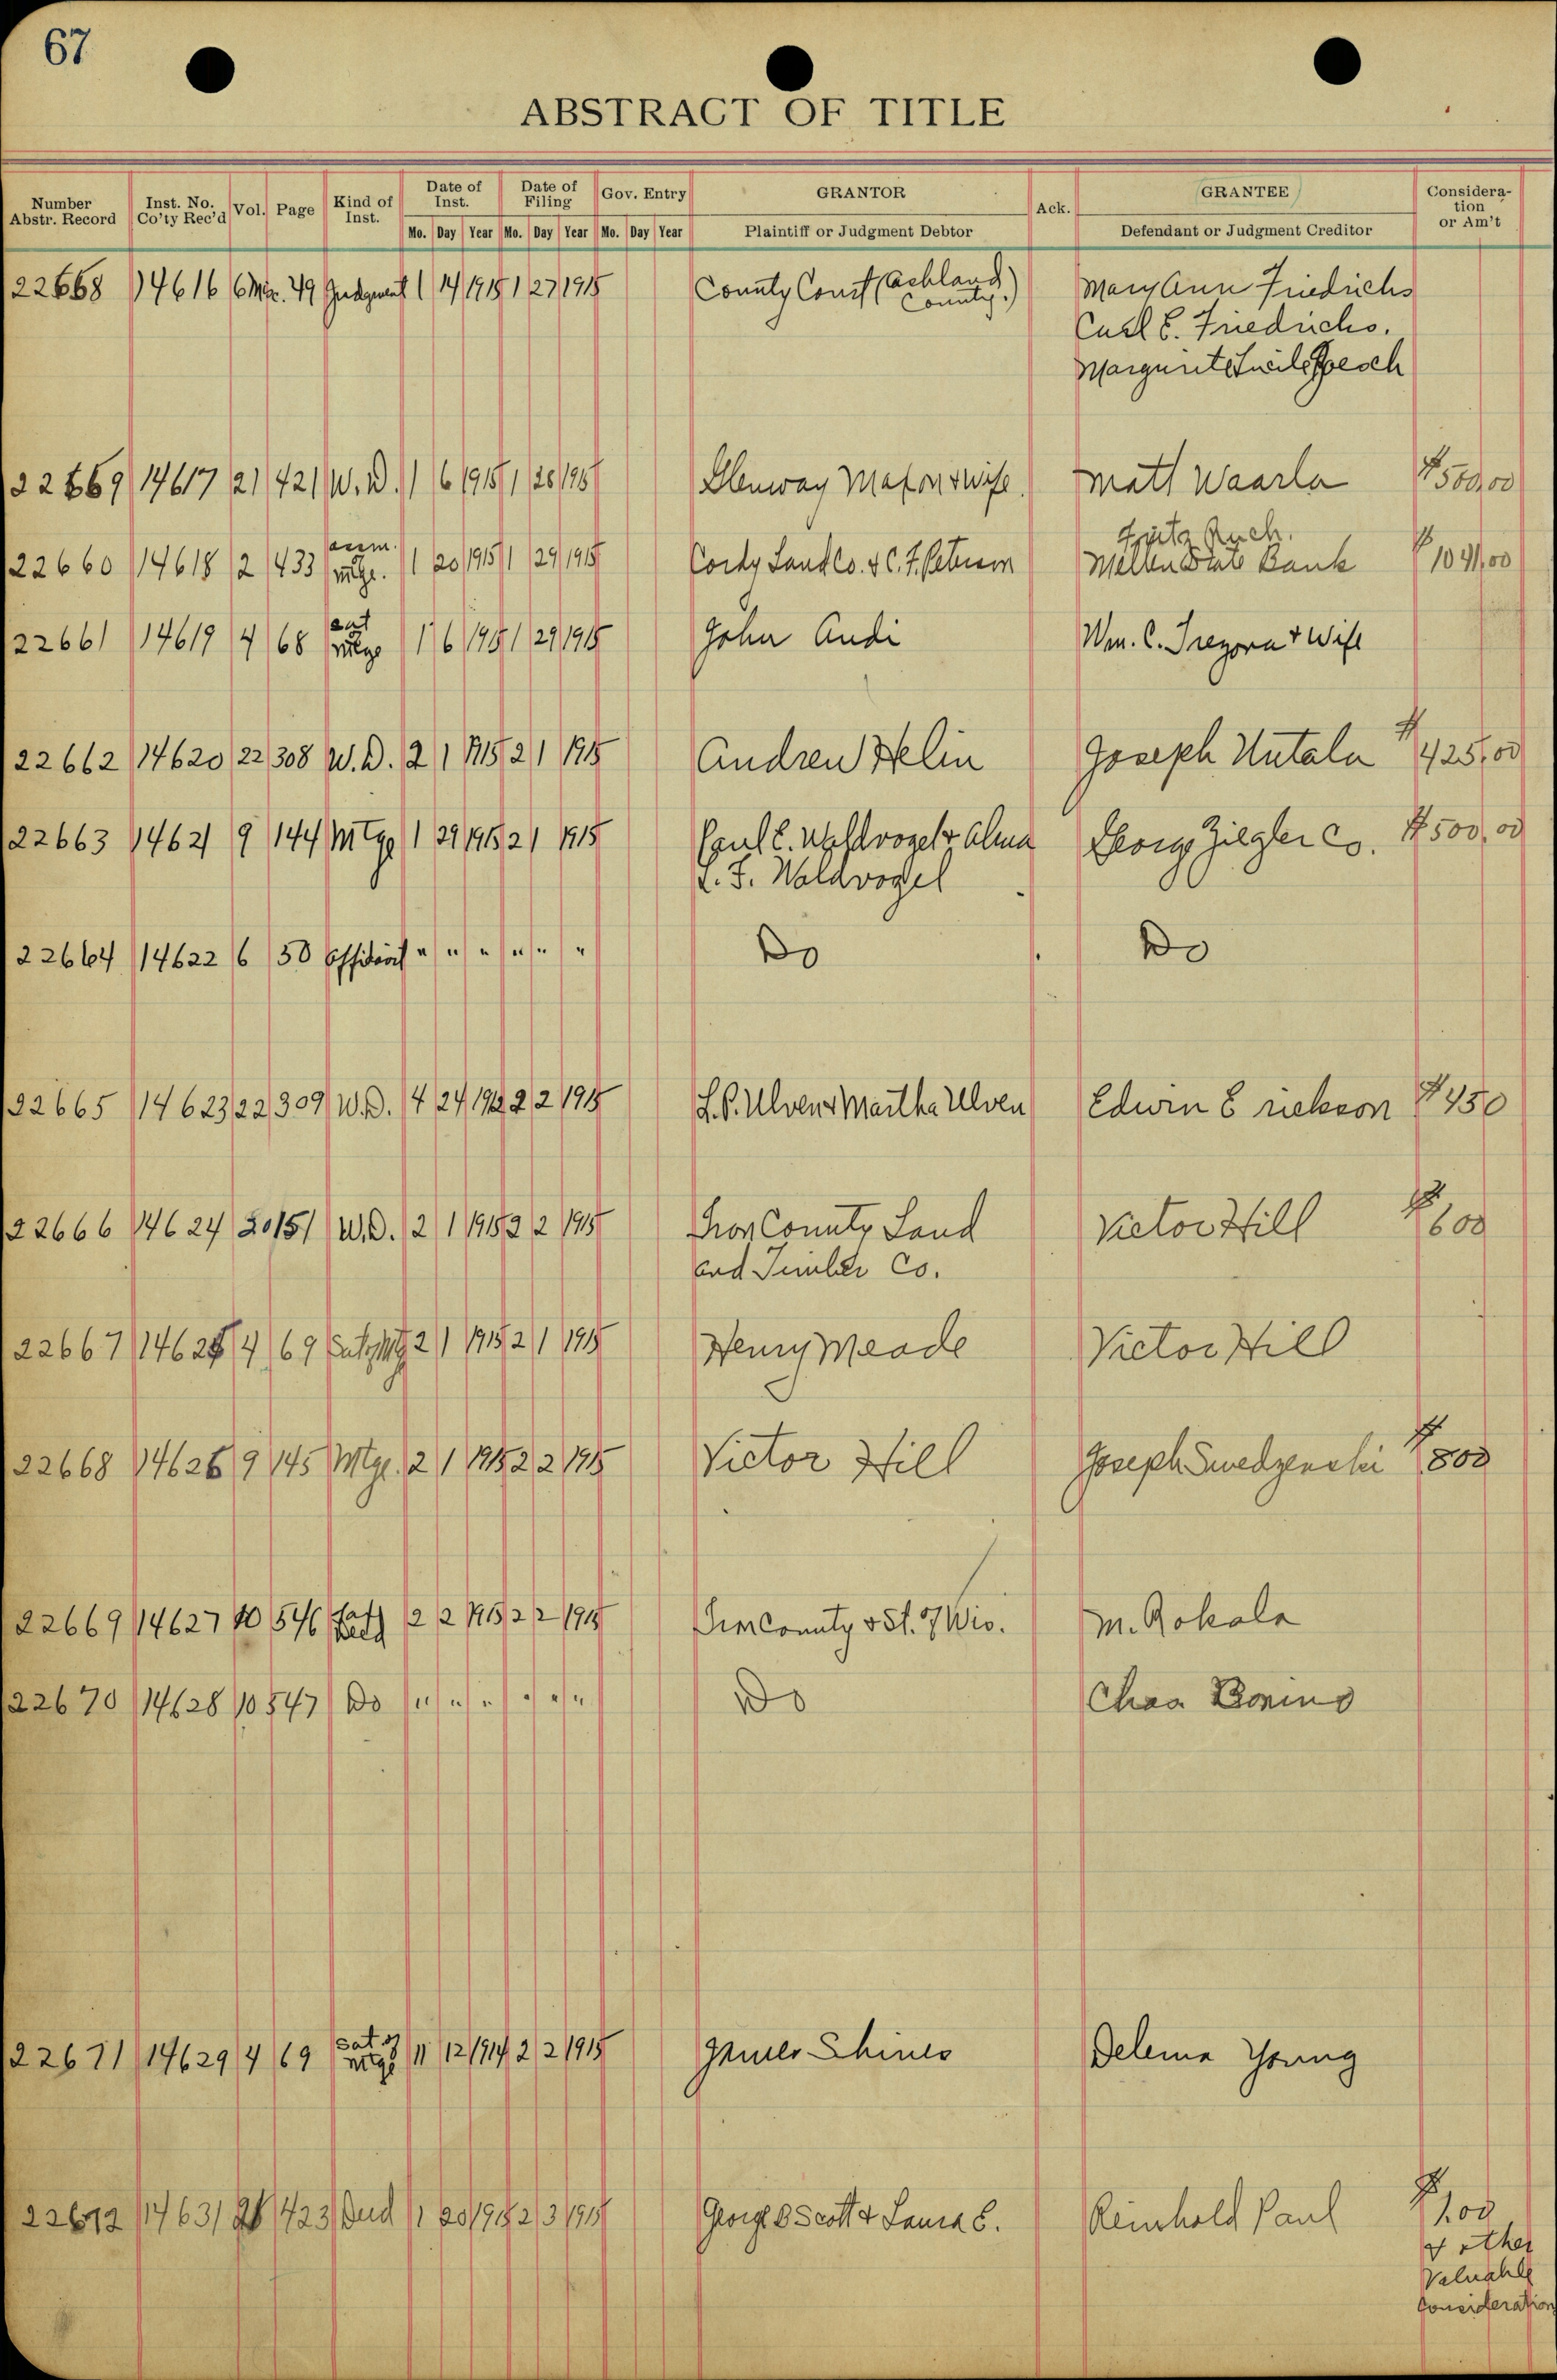 67
ABSTRACT OF TITLE
Number Abstr. Record | Inst. No. Co'ty Rec'd | Vol. | Page | Kind of Inst. | Date of Inst. Mo. Day Year | Date of Filing Mo. Day Year | Gov. Entry Mo. Day Year | GRANTOR Plaintiff or Judgment Debtor | Ack. | GRANTEE Defendant or Judgment Creditor | Consideration or Am't
22658 14616 6 Misc. 49 Judgment 1 14 1915 1 27 1915 County Court (Ashland County.) Mary Ann Friedrichs
Carl E. Friedrichs.
22659 14617 21 421 W.D. 1 6 1915 1 28 1915 Glenway Maxon & Wife Matt Waarla $500.00
Fritz Ruch.
22660 14618 2 433 assm. mtge. 1 20 1915 1 29 1915 Cordy Land Co. & C. F. Peterson Mellen State Bank $1041.00
22661 14619 4 68 sat mtge 1 6 1915 1 29 1915 John Andi Wm. C. Tregona & Wife
22662 14620 22 308 W.D. 2 1 1915 2 1 1915 Andrew Helin Joseph Hutala $425.00
22663 14621 9 144 Mtge 1 29 1915 2 1 1915 Paul E. Waldvogel & Alma George Ziegler Co. $500.00
L. F. Waldvogel
22664 14622 6 50 Affidavit " " " " " " Do Do
22665 14623 22 309 W.D. 4 24 1912 2 2 1915 L. P. Ulven & Martha Ulven Edwin Erickson $450
22666 14624 20 151 W.D. 2 1 1915 2 2 1915 Iron County Land Victor Hill $600
and Timber Co.
22667 14625 4 69 Sat of Mtg 2 1 1915 2 1 1915 Henry Meade Victor Hill
22668 14626 9 145 Mtge. 2 1 1915 2 2 1915 Victor Hill Joseph Swedzenski $800
22669 14627 10 546 Deed 2 2 1915 2 2 1915 Iron County & St. of Wis. M. Rokala
22670 14628 10 547 Do " " " " " " Do Chas Bonino
22671 14629 4 69 Sat of mtge 11 12 1914 2 2 1915 James Shines Delema Young
22672 14631 21 423 Deed 1 20 1915 2 3 1915 George B Scott & Laura E. Reinhold Paul $1.00
& other
Valuable
Consideration